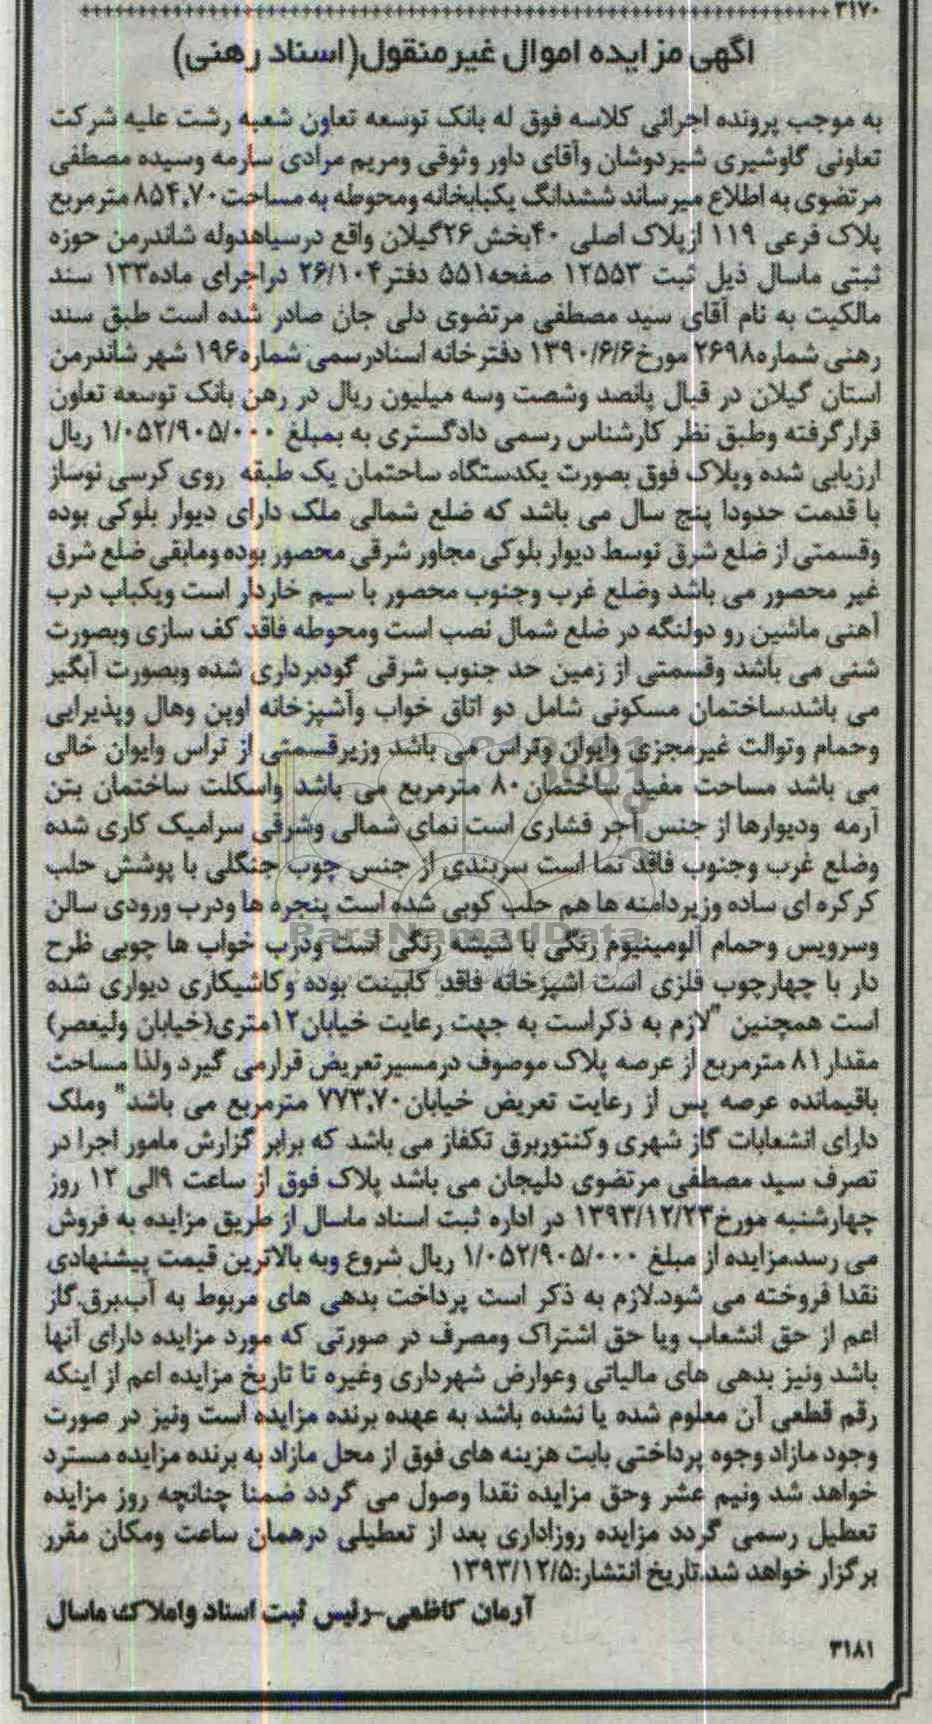 ۳۱۷۰
آگهی مزایده اموال غیر منقول(اسناد رهنی)
به موجب پرونده اجرائی کلاسه فوق له بانک توسعه تعاون شعبه رشت علیه شرکت
تعاونی گاوشیری شیردوشان وآقای داور وثوقی ومریم مرادی سارمه وسیده مصطفی
مرتضوی به اطلاع میرساند ششدانگ یکبابخانه ومحوطه به مساحت ۸۵۴,۷۰ مترمربع
پلاک فرعی ۱۱۹ ازپلاک اصلی ۴۰بخش۲۶گیلان واقع درسیاهدوله شاندرمن حوزه
ثبتی ماسال ذیل ثبت ۱۲۵۵۳ صفحه۵۵۱ دفتر۲۶/۱۰۴ دراجرای ماده۱۳۳ سند
مالکیت به نام آقای سید مصطفی مرتضوی دلی جان صادر شده است طبق سند
رهنی شماره۲۶۹۸ مورخ۱۳۹۰/۶/۶ دفترخانه اسنادرسمی شماره۱۹۶ شهر شاندرمن
استان گیلان در قبال پانصد وشصت وسه میلیون ریال در رهن بانک توسعه تعاون
قرارگرفته وطبق نظر کارشناس رسمی دادگستری به بمبلغ ۱/۰۵۲/۹۰۵/۰۰۰ ریال
ارزیابی شده وپلاک فوق بصورت یکدستگاه ساختمان یک طبقه روی کرسی نوساز
با قدمت حدودا پنج سال می باشد که ضلع شمالی ملک دارای دیوار بلوکی بوده
وقسمتی از ضلع شرق توسط دیوار بلوکی مجاور شرقی محصور بوده ومابقی ضلع شرق
غیر محصور می باشد وضلع غرب وجنوب محصور با سیم خاردار است ویکباب درب
آهنی ماشین رو دولنگه در ضلع شمال نصب است ومحوطه فاقد کف سازی وبصورت
شنی می باشد وقسمتی از زمین حد جنوب شرقی گودبرداری شده وبصورت آبگیر
می باشد.ساختمان مسکونی شامل دو اتاق خواب وآشپزخانه اوپن وهال وپذیرایی
وحمام وتوالت غیرمجزی وایوان وتراس می باشد وزیرقسمتی از تراس وایوان خالی
می باشد مساحت مفید ساختمان۸۰ مترمربع می باشد واسکلت ساختمان بتن
آرمه ودیوارها از جنس آجر فشاری است نمای شمالی وشرقی سرامیک کاری شده
وضلع غرب وجنوب فاقد نما است سربندی از جنس چوب جنگلی با پوشش حلب
کرکره ای ساده وزیردامنه ها هم حلب کوبی شده است پنجره ها ودرب ورودی سالن
ParsNamadData
وسرویس وحمام آلومینیوم رنگی با شیشه رنگی است ودرب خواب ها چوبی طرح
دار با چهارچوب فلزی است اشپزخانه فاقد کابینت بوده وکاشیکاری دیواری شده
است همچنین "لازم به ذکراست به جهت رعایت خیابان۱۲متری(خیابان ولیعصر)
مقدار۸۱ مترمربع از عرصه پلاک موصوف درمسیرتعریض قرارمی گیرد ولذا مساحت
باقیمانده عرصه پس از رعایت تعریض خیابان۷۷۳,۷۰ مترمربع می باشد" وملک
دارای انشعابات گاز شهری وکنتوربرق تکفاز می باشد که برابر گزارش مامور اجرا در
تصرف سید مصطفی مرتضوی دلیجان می باشد پلاک فوق از ساعت ۹الی ۱۲ روز
چهارشنبه مورخ۱۳۹۳/۱۲/۲۳ در اداره ثبت اسناد ماسال از طریق مزایده به فروش
می رسد.مزایده از مبلغ ۱/۰۵۲/۹۰۵/۰۰۰ ریال شروع وبه بالاترین قیمت پیشنهادی
نقدا فروخته می شود.لازم به ذکر است پرداخت بدهی های مربوط به آب.برق.گاز
اعم از حق انشعاب ویا حق اشتراک ومصرف در صورتی که مورد مزایده دارای آنها
باشد ونیز بدهی های مالیاتی وعوارض شهرداری وغیره تا تاریخ مزایده اعم از اینکه
رقم قطعی آن معلوم شده یا نشده باشد به عهده برنده مزایده است ونیز در صورت
وجود مازاد وجوه پرداختی بابت هزینه های فوق از محل مازاد به برنده مزایده مسترد
خواهد شد ونیم عشر وحق مزایده نقدا وصول می گردد ضمنا چنانچه روز مزایده
تعطیل رسمی گردد مزایده روزاداری بعد از تعطیلی درهمان ساعت ومکان مقرر
برگزار خواهد شد.تاریخ انتشار:۱۳۹۳/۱۲/۵
آرمان کاظمی-رئیس ثبت اسناد واملاک ماسال
۳۱۸۱